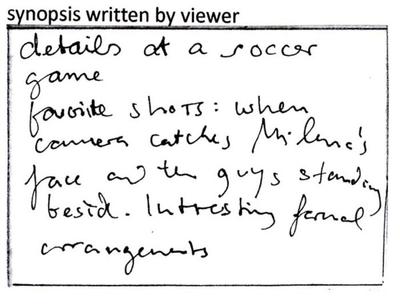 synopsis written by viewer
details at a soccer
game
favorite shots: when
camera catches Milena's
face and the guys standing
besid. Intresting formal
arrangements